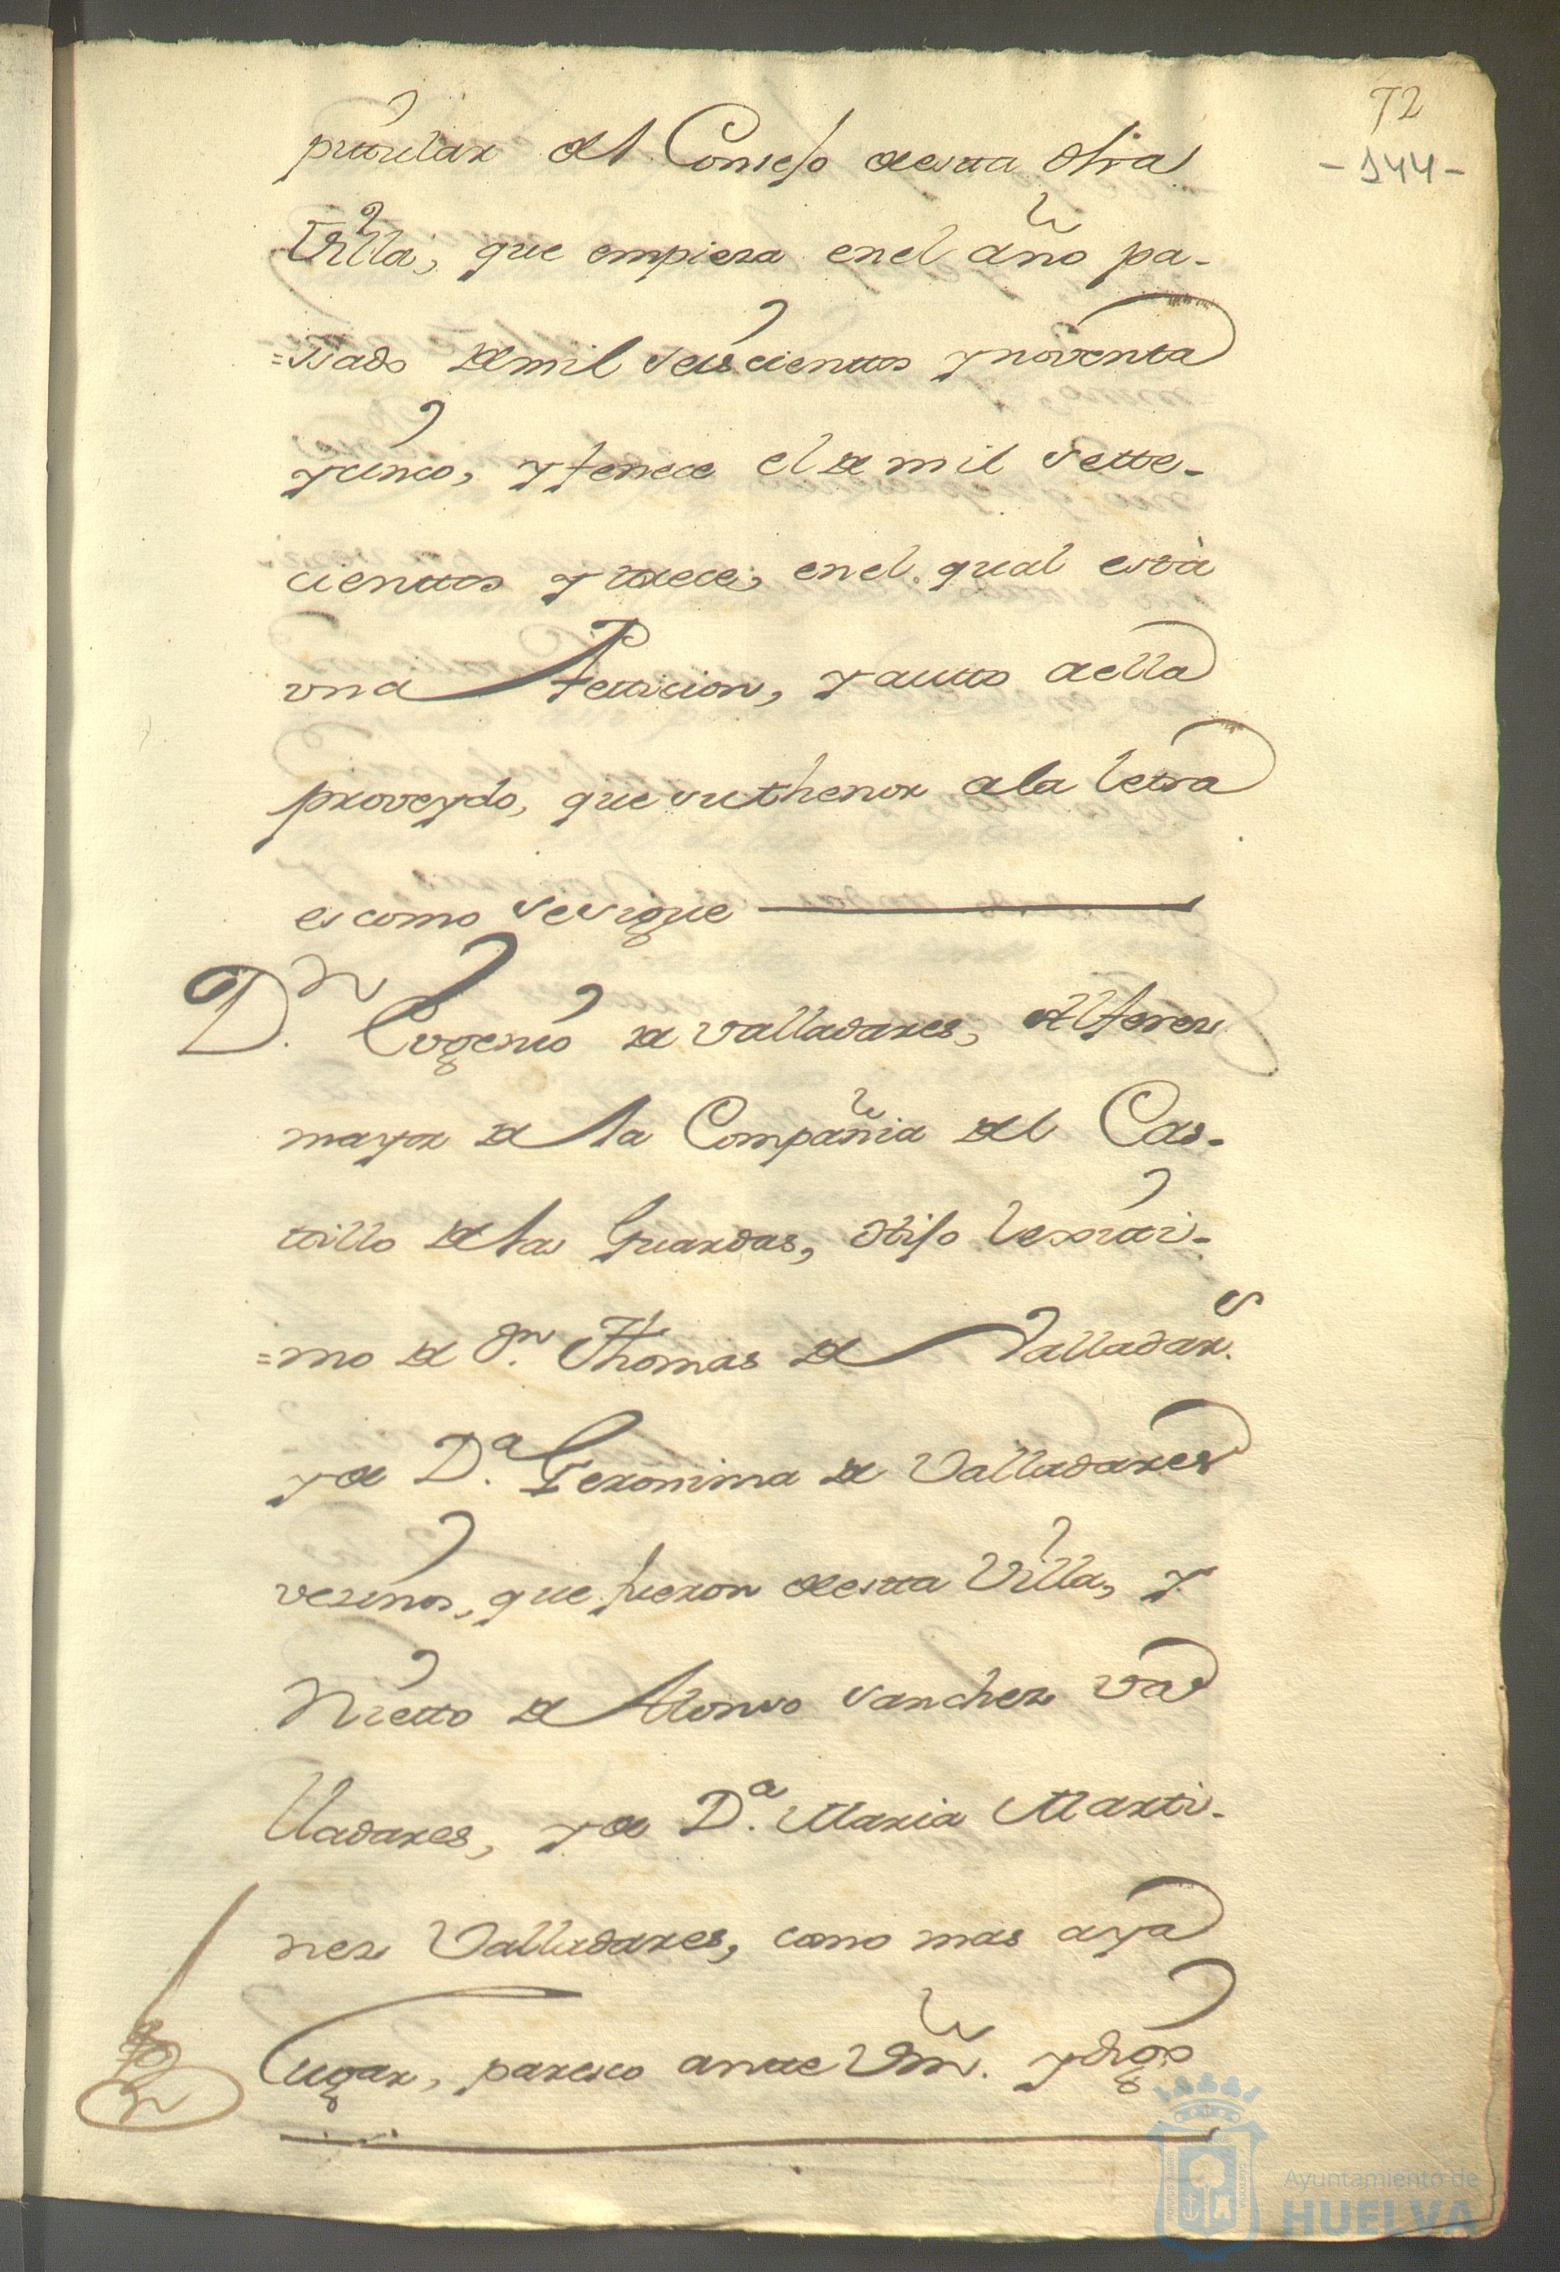 72
-144-
pitular del Consejo desta dha
Villa, que empieza en el año pa-
=ssado de mil seiscienttos y noventa
y cinco, y fenece el de mil sette-
cienttos y trece, en el qual està
vna Pettizion, y autto a ella
proveydo, que su thenor a la letra
es como se sigue
Dn. Eugenio de Valladares, Alferez
mayor de la Compañia del Cas-
tillo de las Guardas, hijo lexiti-
=mo de Dn. Thomas de Valladars.
y de Da. Geronima de Valladares
vezinos, que fueron desta Villa, y
Nietto de Alonso Sanchez Va
lladares, y de Da. Maria Marti-
nez Valladares, como mas aya
lugar, paresco antte Vm. y digo
Ayuntamiento de
HUELVA